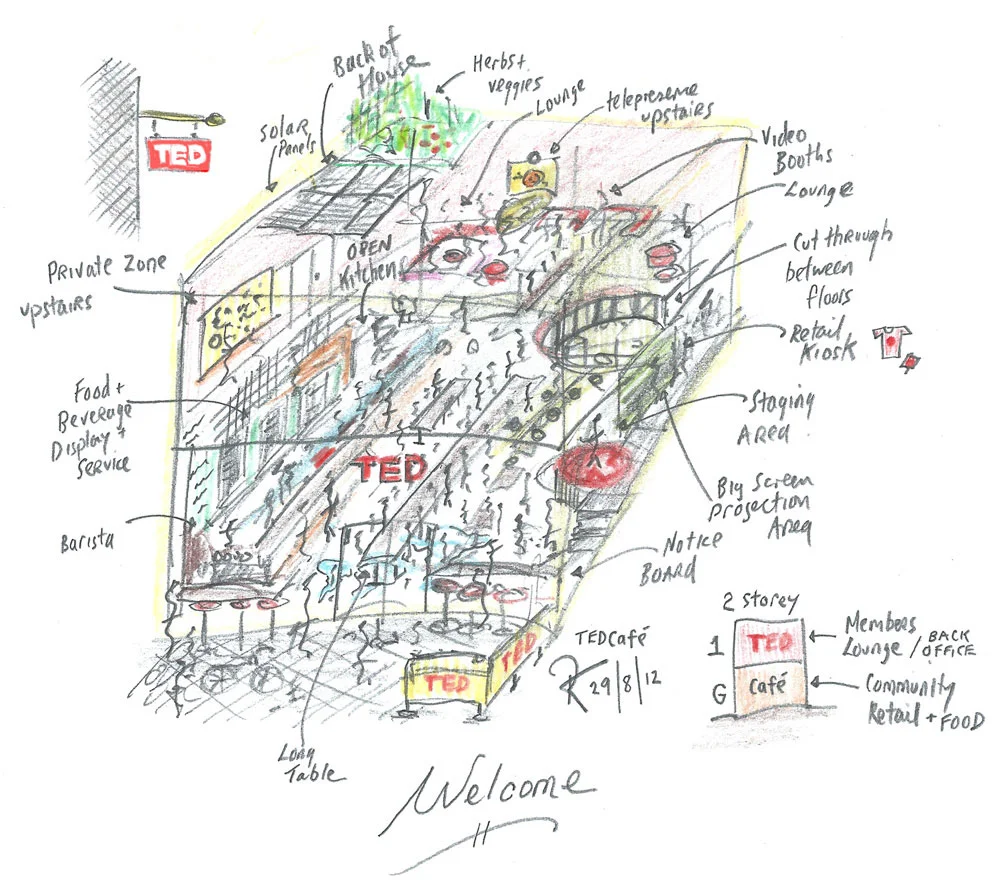 Back of
House
Herbs +
veggies
Lounge
telepresence
upstairs
Solar
Panels
TED
Video
Booths
Lounge
OPEN
Kitchen
Cut through
between
floors
Private Zone
upstairs
Retail
Kiosk
Food +
Beverage
Display +
Service
Staging
AREA
TED
Big Screen
Projection
Area
Barista
Notice
BOARD
TEDCafé
29/8/12
TED
TED
2 Storey
1
TED
Members
Lounge / BACK
OFFICE
G
Café
Community
Retail + FOOD
Long
Table
Welcome